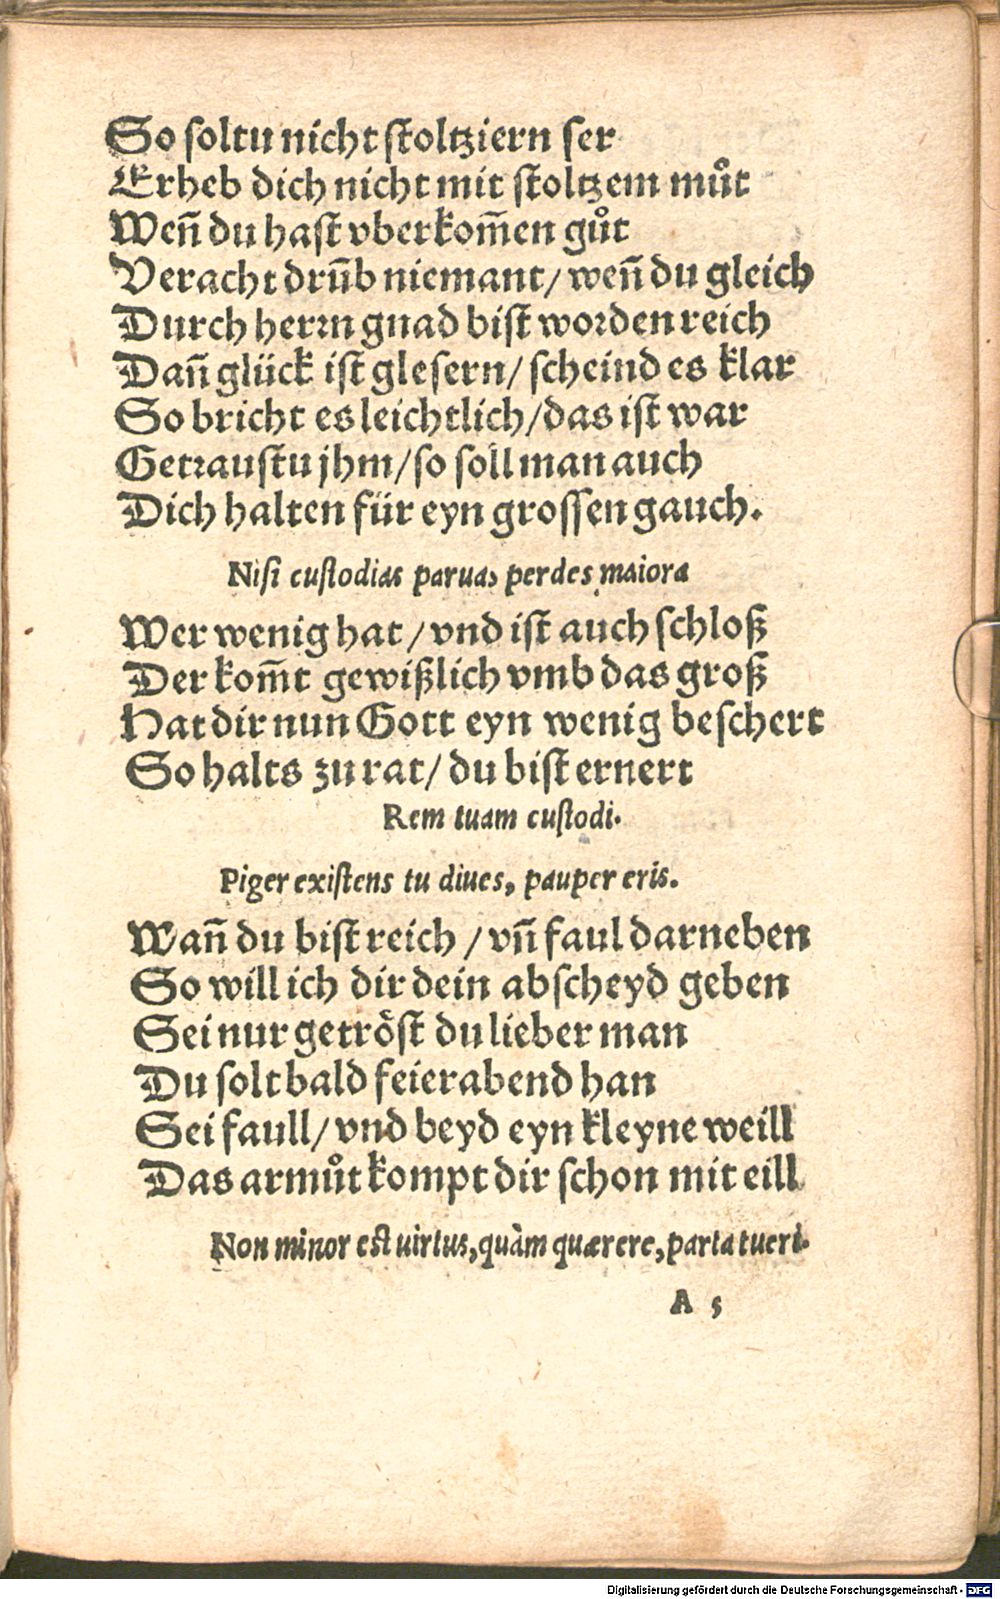 So soltu nicht stoltziern ser
Erheb dich nicht mit stoltzem můt
Weñ du hast vberkom̃en gůt
Veracht drũb niemant/ weñ du gleich
Durch herrn gnad bist worden reich
Dañ glück ist glesern/ scheind es klar
So bricht es leichtlich/das ist war
Getraustu jhm/so soll man auch
Dich halten für eyn grossen gauch.
Nisi custodias paruas perdes maiora
Wer wenig hat /vnd ist auch schloß
Der kom̃t gewißlich vmb das groß
Hat dir nun Gott eyn wenig beschert
So halts zu rat/ du bist ernert
Rem tuam custodi.
Piger existens tu diues, pauper eris.
Wañ du bist reich /vñ faul darneben
So will ich dir dein abscheyd geben
Sei nur getröst du lieber man
Du solt bald feierabend han
Sei faull/vnd beyd eyn kleyne weill
Das armůt kompt dir schon mit eill
Non minor est uirtus,quàm quærere,parta tueri.
A 5
Digitalisierung gefördert durch die Deutsche Forschungsgemeinschaft - DFG